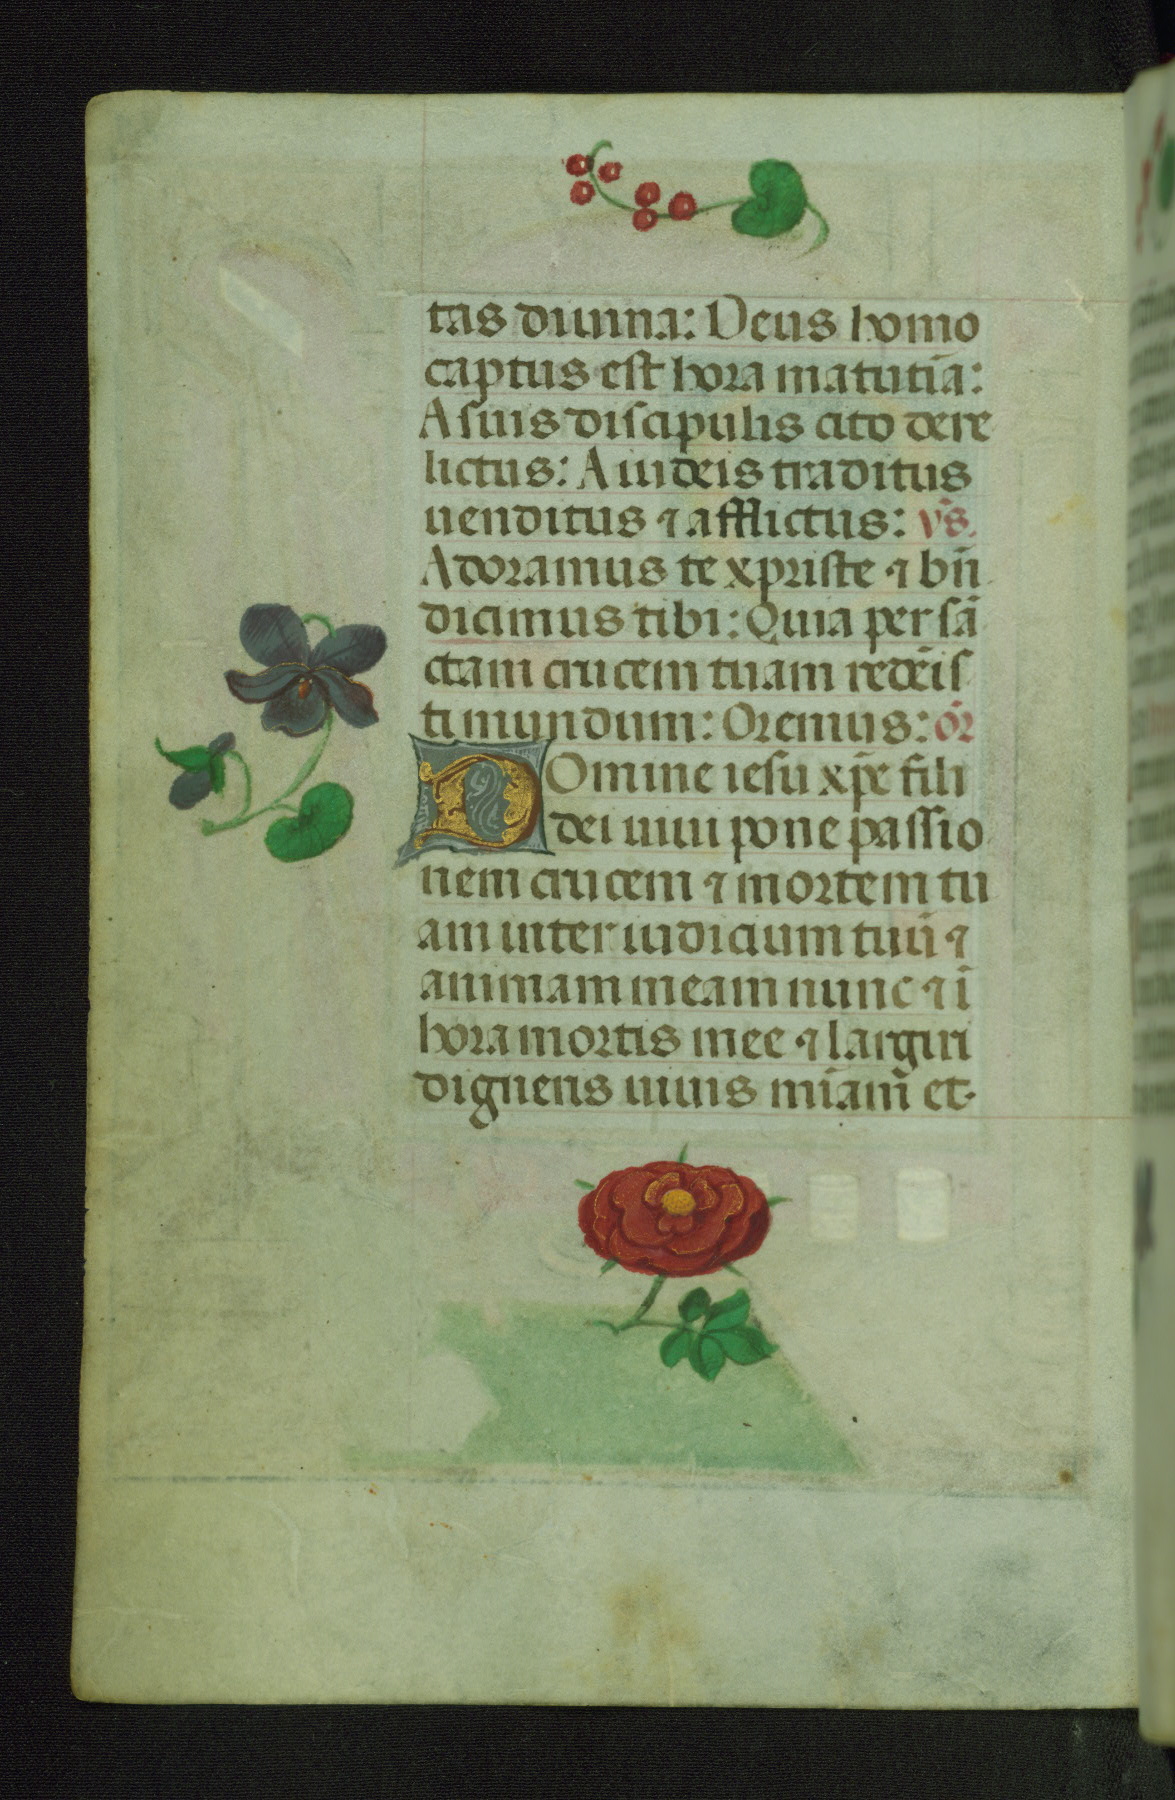 tas diuina: Deus homo
captus est hora matutīa:
A suis discipulis cito dere
lictus: A iudeis traditus
uenditus ⁊ afflictus: v̄s.
Adoramus te xpriste ⁊ bn̄
dicimus tibi: Quia per sā
ctam crucem tuam redēis
ti mundum: Oremus: or̄
DOmine iesu xp̄e fili
dei uiui pone passio
nem crucem ⁊ mortem tu
am inter iudicium tuū ⁊
animam meam nunc ⁊ ī
hora mortis mee ⁊ largiri
digneris uiuis mīam̄ et